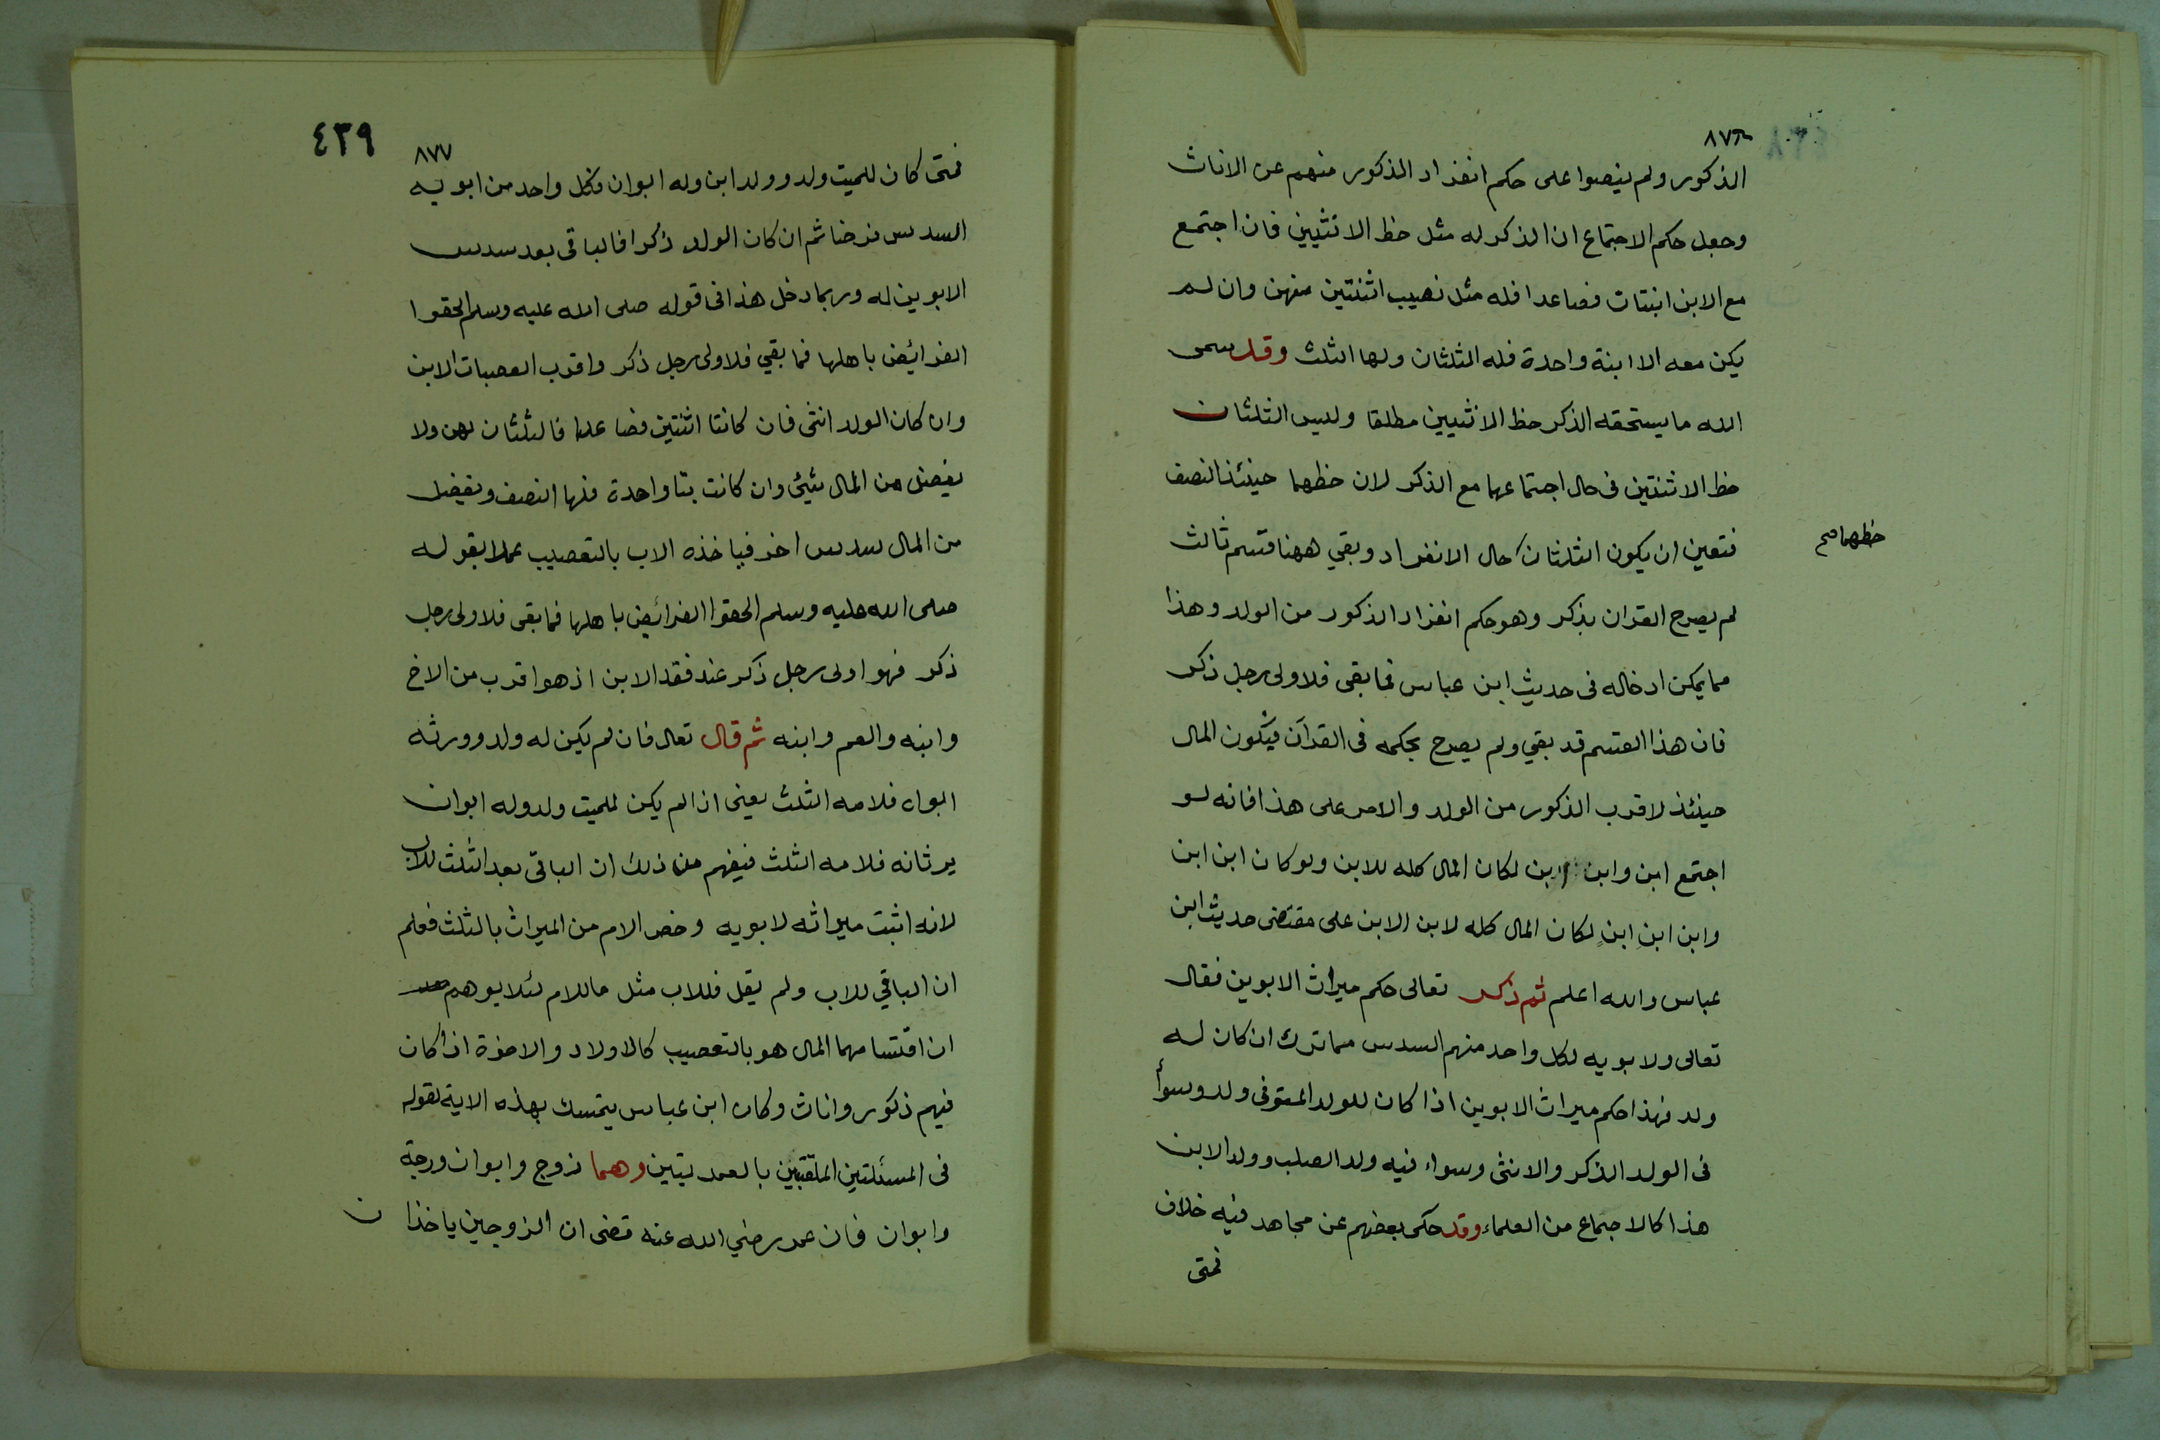 ٨٧٦
الذكور ولم ينصوا على حكم انفراد الذكور منهم عن الاناث
وجعل حكم الاجتماع ان الذكر له مثل حظ الانثيين فان اجتمع
مع الابن ابنتان فصاعدا فله مثل نصيب اثنتين منهن وان لم
يكن معه الا ابنة واحدة فله الثلثان ولها الثلث وقد سمى
الله ما يستحقه الذكر حظ الانثيين مطلقا وليس الثلثان
حظ الانثنتين فى حال اجتماعهما مع الذكر لان حظهما حينئذ النصف
فتعين ان يكون الثلثان حال الانفراد وبقي ههنا قسم ثالث
حظهما صح
لم يصرح القران بذكر وهو حكم انفراد الذكور من الولد وهذا
مما يمكن ادخاله فى حديث ابن عباس فما بقى فلاولى رجل ذكر
فان هذا القسم قد بقي ولم يصرح بحكمه فى القرآن فيكون المال
حينئذ لاقرب الذكور من الولد والامر على هذا فانه لو
اجتمع ابن وابن ابن لكان المال كله للابن ولو كان ابن ابن
وابن ابنِ ابنٍ لكان المال كله لابن الابن على مقتضى حديث ابن
عباس والله اعلم ثم ذكر تعالى حكم ميراث الابوين فقال
تعالى ولابويه لكل واحد منهم السدس مما ترك ان كان له
ولد فهذا حكم ميراث الابوين اذا كان للولد المتوفى ولد وسوأ
فى الولد الذكر والانثى وسواء فيه ولد الصلب وولد الابن
هذا كالاجماع من العلماء وقد حكى بعضهم عن مجاهد فيه خلاف
فمتى
٤٣٩
٨٧٧
فمتى كان للميت ولد وولد ابن وله ابوان فلكل واحد من ابويه
السدس فرضا ثم ان كان الولد ذكرا فالباقى بعد سدس
الابوين له وربما دخل هذا فى قوله صلى الله عليه وسلم الحقوا
الفرائض باهلها فما بقي فلاولى رجل ذكر واقرب العصبات الابن
وان كان الولد انثى فان كانتا اثنتين فصاعدا فالثلثان لهن ولا
يفضل من المال شيئ وان كانت بنتا واحدة فلها النصف ويفضل
من المال سدس اخر فياخذه الاب بالتعصيب عملا بقوله
صلى الله عليه وسلم الحقوا الفرائض باهلها فما بقى فلاولى رجل
ذكر فهو اولى رجل ذكر عند فقد الابن اذ هو اقرب من الاخ
وابنه والعم وابنه ثم قال تعالى فان لم يكن له ولد وورثه
ابواه فلامه الثلث يعنى اذا لم يكن للميت ولد وله ابوان
يرثانه فلامه الثلث فيفهم من ذلك ان الباقى بعد الثلث للاب
لانه اثبت ميراثه لابويه وخص الام من الميراث بالثلث فعلم
ان الباقي للاب ولم يقل فللاب مثل ما للام لئلا يوهم
ان اقتسامهما المال هو بالتعصيب كالاولاد والاخوة اذا كان
فيهم ذكور واناث وكان ابن عباس يتمسك بهذه الاية لقوله
فى المسئلتين الملقبتين بالعمريتين وهما زوج وابوان وزوجة
وابوان فان عمر رضي الله عنه قضى ان الزوجين ياخذان